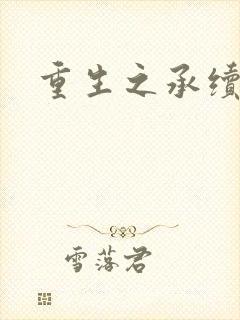 重生之承续
雪落君